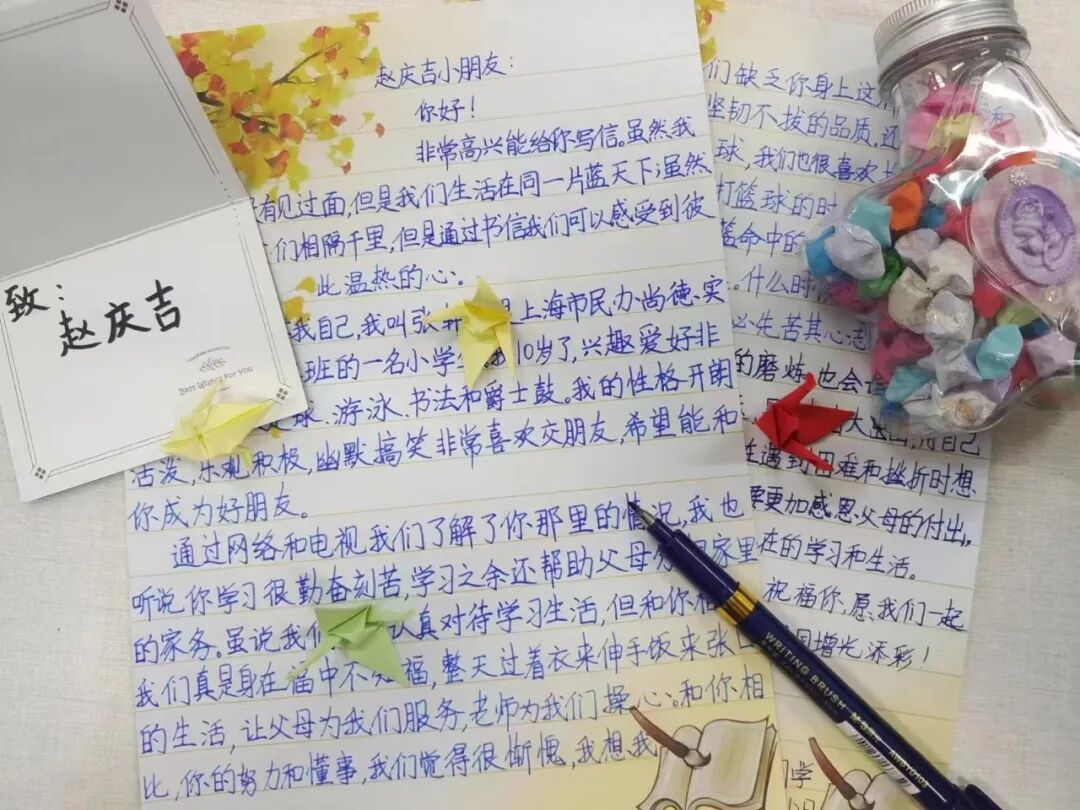 致：
赵庆吉
Best Wishes For You
赵庆吉小朋友：
你好！
非常高兴能给你写信。虽然我
有见过面，但是我们生活在同一片蓝天下；虽然
们相隔千里，但是通过书信我们可以感受到彼
此温热的心。
我自己，我叫张 上海市民办尚德实
班的一名小学生 10岁了，兴趣爱好非
球、游泳、书法和爵士鼓。我的性格开朗
活泼，乐观积极，幽默搞笑非常喜欢交朋友，希望能和
你成为好朋友。
通过网络和电视我们了解了你那里的情况，我也
听说你学习很勤奋刻苦，学习之余还帮助父母 家里
的家务。虽说我们 认真对待学习生活，但和你相
我们真是身在福中不知福，整天过着衣来伸手饭来张口
的生活，让父母为我们服务，老师为我们操心。和你相
比，你的努力和懂事，我们觉得很惭愧，我想我
们缺乏你身上这 和
坚韧不拔的品质，还
球，我们也很喜欢
打篮球的时
篮命中的
什么时
必先苦其心志
的磨炼，也会
自己
遇到困难和挫折时想
要更加感恩父母的付出，
在的学习和生活。
祝福你，愿我们一起
国增光添彩！
们学
WRITING BRUSH M&G